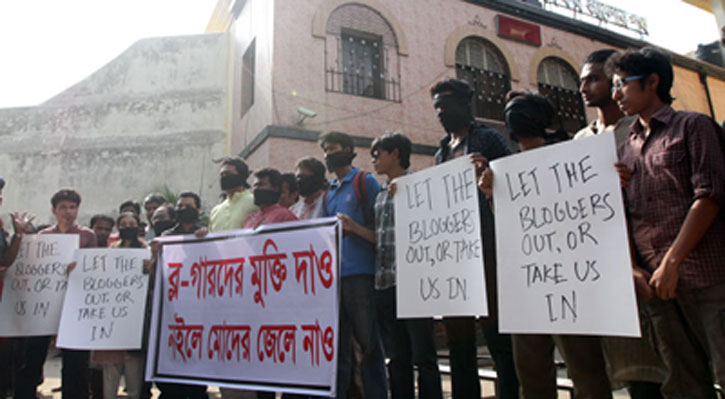 LET THE
BLOGGERS
OUT, OR
TAKE US
IN
LET THE
BLOGGERS
OUT, OR TAKE
US IN
ব্ল-গারদের মুক্তি দাও
নইলে মোদের জেলে নাও
LET THE
BLOGGERS
OUT, OR TAKE
US IN.
LET THE
BLOGGERS
OUT, OR
TAKE US
IN